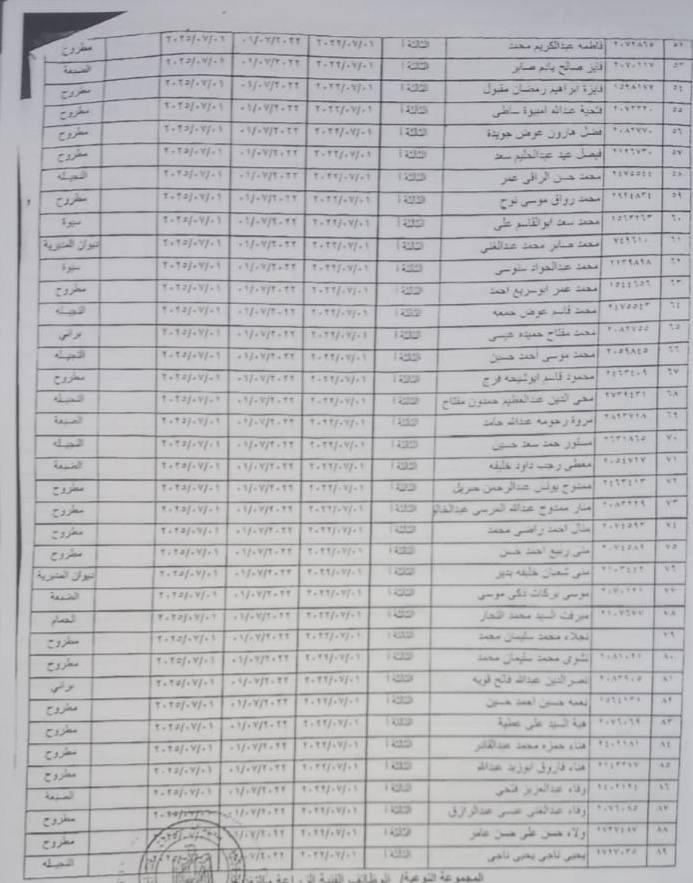 ٥٢ ٢٠٧٢٨٦٥ فاطمه عبدالكريم محمد الثالثة أ ٢٠٢٢/٠٧/٠١ ٠١/٠٧/٢٠٢٢ ٢٠٢٥/٠٧/٠١ مطروح
٥٣ فايز صالح الثالثة أ ٢٠٢٢/٠٧/٠١ ٠١/٠٧/٢٠٢٢ ٢٠٢٥/٠٧/٠١ الضبعة
٥٤ فايزة ابراهيم رمضان مقبول الثالثة أ ٢٠٢٢/٠٧/٠١ ٠١/٠٧/٢٠٢٢ ٢٠٢٥/٠٧/٠١ مطروح
٥٥ فتحية عبدالله الثالثة أ ٢٠٢٢/٠٧/٠١ ٠١/٠٧/٢٠٢٢ ٢٠٢٥/٠٧/٠١ مطروح
٥٦ فضل هارون عوض جويدة الثالثة أ ٢٠٢٢/٠٧/٠١ ٠١/٠٧/٢٠٢٢ ٢٠٢٥/٠٧/٠١ مطروح
٥٧ فيصل عيد عبدالحليم سعد الثالثة أ ٢٠٢٢/٠٧/٠١ ٠١/٠٧/٢٠٢٢ ٢٠٢٥/٠٧/٠١ مطروح
٥٨ ٢٤٧٥٥٤٤ محمد حسن الراقى عمر الثالثة أ ٢٠٢٢/٠٧/٠١ ٠١/٠٧/٢٠٢٢ ٢٠٢٥/٠٧/٠١ النجيله
٥٩ محمد رواق موسى نوح الثالثة أ ٢٠٢٢/٠٧/٠١ ٠١/٠٧/٢٠٢٢ ٢٠٢٥/٠٧/٠١ مطروح
٦٠ محمد سعد ابوالقاسم على الثالثة أ ٢٠٢٢/٠٧/٠١ ٠١/٠٧/٢٠٢٢ ٢٠٢٥/٠٧/٠١ سيوة
٦١ ٧٤٩٦١٠ محمد صابر محمد عبدالغنى الثالثة أ ٢٠٢٢/٠٧/٠١ ٠١/٠٧/٢٠٢٢ ٢٠٢٥/٠٧/٠١ ديوان المديرية
٦٢ محمد عبدالجواد سنوسى الثالثة أ ٢٠٢٢/٠٧/٠١ ٠١/٠٧/٢٠٢٢ ٢٠٢٥/٠٧/٠١ سيوة
٦٣ ١٥٤٤٦٥٦ محمد عمر ابوسريع احمد الثالثة أ ٢٠٢٢/٠٧/٠١ ٠١/٠٧/٢٠٢٢ ٢٠٢٥/٠٧/٠١ مطروح
٦٤ ٢٤٧٥٥٤٣ محمد قاسم عوض جمعه الثالثة أ ٢٠٢٢/٠٧/٠١ ٠١/٠٧/٢٠٢٢ ٢٠٢٥/٠٧/٠١ النجيله
٦٥ ٢٠٨٢٧٥٥ محمد مفتاح حميده عيسى الثالثة أ ٢٠٢٢/٠٧/٠١ ٠١/٠٧/٢٠٢٢ ٢٠٢٥/٠٧/٠١ برانى
٦٦ ٢٠٥٩٨٤٥ محمد موسى احمد حسين الثالثة أ ٢٠٢٢/٠٧/٠١ ٠١/٠٧/٢٠٢٢ ٢٠٢٥/٠٧/٠١ النجيله
٦٧ ٢٤٦٣٤٠٩ محمود قاسم ابوشيحه فرج الثالثة أ ٢٠٢٢/٠٧/٠١ ٠١/٠٧/٢٠٢٢ ٢٠٢٥/٠٧/٠١ مطروح
٦٨ ٢٧٣٩٤٣١ محى الدين عبدالعظيم حمدون مفتاح الثالثة أ ٢٠٢٢/٠٧/٠١ ٠١/٠٧/٢٠٢٢ ٢٠٢٥/٠٧/٠١ النجيله
٦٩ مروة رحومه عبدالله حامد الثالثة أ ٢٠٢٢/٠٧/٠١ ٠١/٠٧/٢٠٢٢ ٢٠٢٥/٠٧/٠١ الضبعة
٧٠ ٢٦٣١٨٦٥ مستور حمد سعد حسين الثالثة أ ٢٠٢٢/٠٧/٠١ ٠١/٠٧/٢٠٢٢ ٢٠٢٥/٠٧/٠١ النجيله
٧١ ٢٠٥٤٧٢٧ معطى رجب داود خليفه الثالثة أ ٢٠٢٢/٠٧/٠١ ٠١/٠٧/٢٠٢٢ ٢٠٢٥/٠٧/٠١ الضبعة
٧٢ ٢٤٦٣٤١٣ ممدوح يونس عبدالرحمن جبريل الثالثة أ ٢٠٢٢/٠٧/٠١ ٠١/٠٧/٢٠٢٢ ٢٠٢٥/٠٧/٠١ مطروح
٧٣ منار ممدوح عبدالله المرسى عبدالخالق الثالثة أ ٢٠٢٢/٠٧/٠١ ٠١/٠٧/٢٠٢٢ ٢٠٢٥/٠٧/٠١ مطروح
٧٤ ٢٠٧٤٥٩٢ منال احمد راضى محمد الثالثة أ ٢٠٢٢/٠٧/٠١ ٠١/٠٧/٢٠٢٢ ٢٠٢٥/٠٧/٠١ مطروح
٧٥ ٢٠٧٤٥٨٩ منى ربيع احمد حسن الثالثة أ ٢٠٢٢/٠٧/٠١ ٠١/٠٧/٢٠٢٢ ٢٠٢٥/٠٧/٠١ مطروح
٧٦ ٢١٠٣٤٤٢ منى شعبان خليفه بدير الثالثة أ ٢٠٢٢/٠٧/٠١ ٠١/٠٧/٢٠٢٢ ٢٠٢٥/٠٧/٠١ ديوان المديرية
٧٧ موسى بركات ذكى موسى الثالثة أ ٢٠٢٢/٠٧/٠١ ٠١/٠٧/٢٠٢٢ ٢٠٢٥/٠٧/٠١ الضبعة
٧٨ ٢١٠٧٦٧٧ ميرفت السيد محمد النجار الثالثة أ ٢٠٢٢/٠٧/٠١ ٠١/٠٧/٢٠٢٢ ٢٠٢٥/٠٧/٠١ الحمام
٧٩ نجلاء محمد سليمان محمد الثالثة أ ٢٠٢٢/٠٧/٠١ ٠١/٠٧/٢٠٢٢ ٢٠٢٥/٠٧/٠١ مطروح
٨٠ نشوى محمد سليمان محمد الثالثة أ ٢٠٢٢/٠٧/٠١ ٠١/٠٧/٢٠٢٢ ٢٠٢٥/٠٧/٠١ مطروح
٨١ ٢٠٨٣٩٠٥ نصر الدين عبدالله فالح قويه الثالثة أ ٢٠٢٢/٠٧/٠١ ٠١/٠٧/٢٠٢٢ ٢٠٢٥/٠٧/٠١ برانى
٨٢ نعمه حسين احمد حسين الثالثة أ ٢٠٢٢/٠٧/٠١ ٠١/٠٧/٢٠٢٢ ٢٠٢٥/٠٧/٠١ مطروح
٨٣ ٢٠٧٦٠٦٩ هبة السيد على عطية الثالثة أ ٢٠٢٢/٠٧/٠١ ٠١/٠٧/٢٠٢٢ ٢٠٢٥/٠٧/٠١ مطروح
٨٤ ٢٤٠٢١٨١ هناء حمزه محمد عبدالقادر الثالثة أ ٢٠٢٢/٠٧/٠١ ٠١/٠٧/٢٠٢٢ ٢٠٢٥/٠٧/٠١ مطروح
٨٥ هناء فاروق ابوزيد عبدالله الثالثة أ ٢٠٢٢/٠٧/٠١ ٠١/٠٧/٢٠٢٢ ٢٠٢٥/٠٧/٠١ مطروح
٨٦ وفاء عبدالعزيز فتحى الثالثة أ ٢٠٢٢/٠٧/٠١ ٠١/٠٧/٢٠٢٢ ٢٠٢٥/٠٧/٠١ الضبعة
٨٧ ٢٠٧٦٠٨٥ وفاء عبدالغنى عيسى عبدالرازق الثالثة أ ٢٠٢٢/٠٧/٠١ ٠١/٠٧/٢٠٢٢ ٢٠٢٥/٠٧/٠١ مطروح
٨٨ ولاء حسن على حسن عامر الثالثة أ ٢٠٢٢/٠٧/٠١ ٠١/٠٧/٢٠٢٢ مطروح
٨٩ ٢٧٢٧٠٣٥ يحيى ناجى يحيى ناجى الثالثة أ ٢٠٢٢/٠٧/٠١ النجيله
المجموعة النوعية/ الوظائف الفنية الزراعة